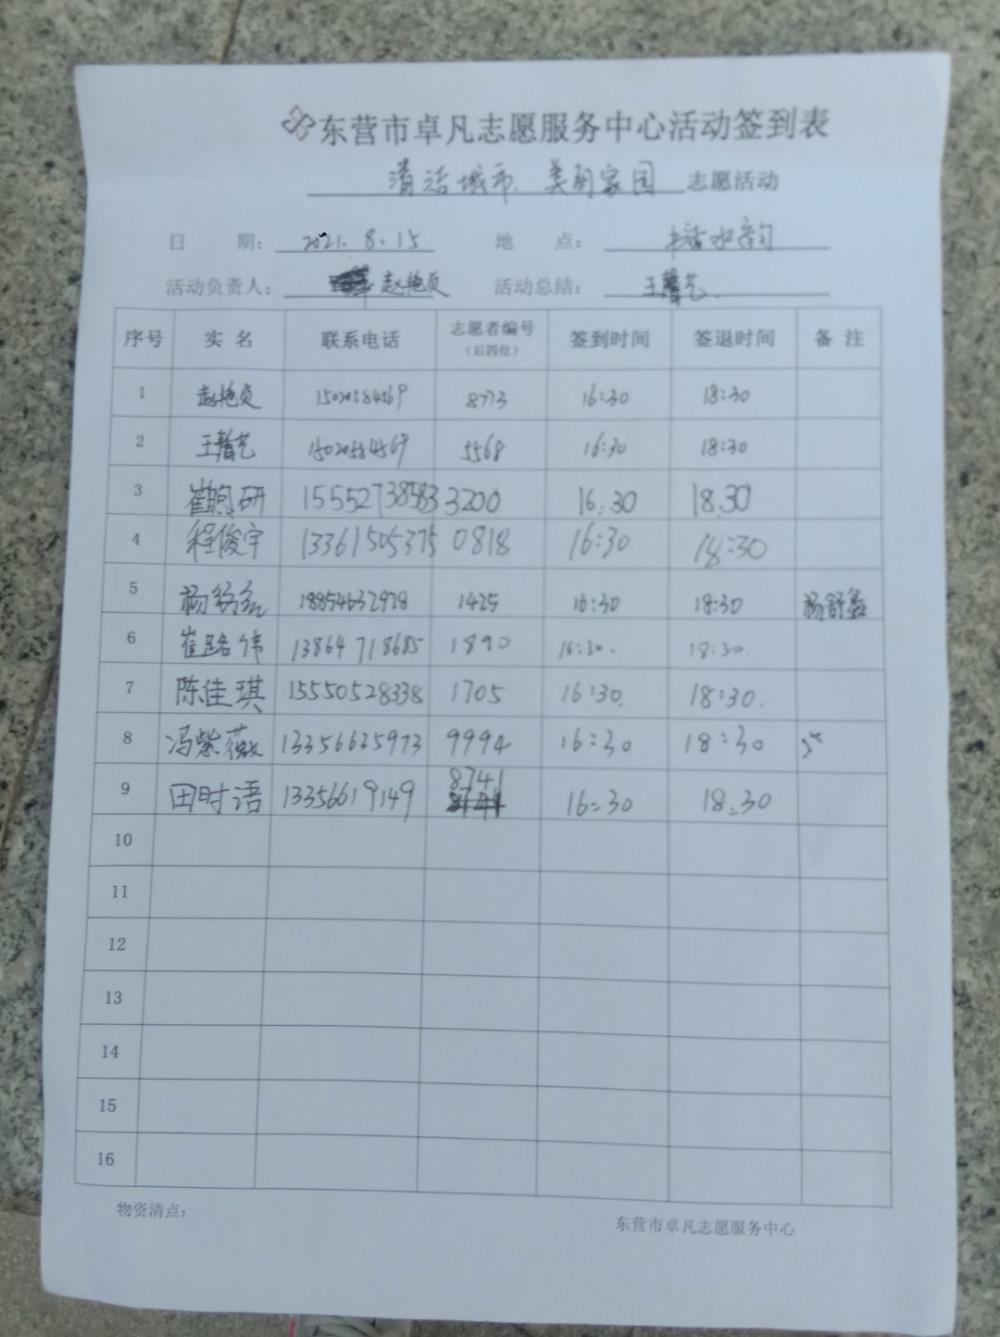 东营市卓凡志愿服务中心活动签到表
清洁城市、美丽家园 志愿活动
日 期： 2021.8.15 地 点： 水韵
活动负责人： 赵艳贞 活动总结： 王馨艺
序号 实名 联系电话 志愿者编号（后四位） 签到时间 签退时间 备注
1 赵艳贞 15020584569 8773 16:30 18:30
2 王馨艺 15020584569 5568 16:30 18:30
3 研 15552738583 3200 16:30 18.30
4 程俊宇 13361505375 0818 16:30 18:30
5 杨 18854632978 1425 16:30 18:30 杨舒
6 崔路伟 13864718685 1890 16:30. 18:30.
7 陈佳琪 15550528338 1705 16:30. 18:30.
8 冯紫薇 13356635973 9994 16:30 18:30
9 田时语 13356619149 8741 16:30 18:30
10
11
12
13
14
15
16
物资清点： 东营市卓凡志愿服务中心